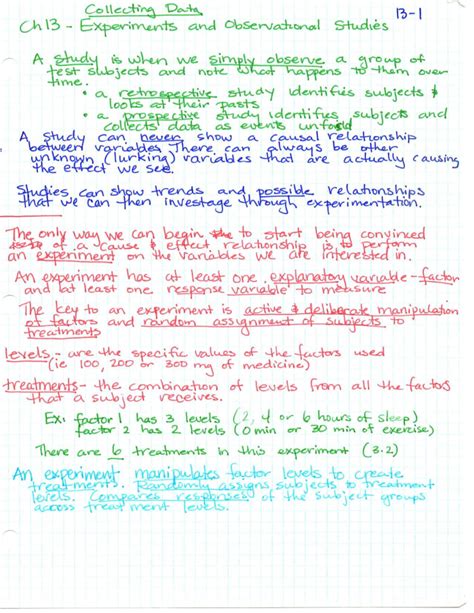 Collecting Data
13-1
Ch 13 - Experiments and Observational Studies
A study is when we simply observe a group of
test subjects and note what happens to them over
time.
• a retrospective study identifies subjects &
looks at their pasts
• a prospective study identifies subjects and
collects data as events unfold
A study can never show a causal relationship
between variables. There can always be other
unknown (lurking) variables that are actually causing
the effect we see.
Studies can show trends and possible relationships
that we can then investage through experimentation.
The only way we can begin to start being convinced
of a cause & effect relationship is to perform
an experiment on the variables we are interested in.
An experiment has at least one explanatory variable - factor
and at least one response variable to measure
The key to an experiment is active & deliberate manipulation
of factors and random assignment of subjects to
treatments
levels - are the specific values of the factors used
(ie 100, 200 or 300 mg of medicine)
treatments - the combination of levels from all the factors
that a subject receives.
Ex: factor 1 has 3 levels (2, 4 or 6 hours of sleep)
factor 2 has 2 levels (0 min or 30 min of exercise)
There are 6 treatments in this experiment (3·2)
An experiment manipulates factor levels to create
treatments. Randomly assigns subjects to treatment
levels. Compares responses of the subject groups
across treatment levels.